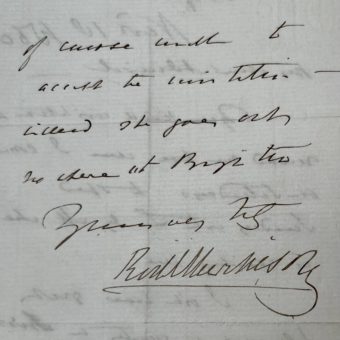 of course unable to
accept the invitation —
indeed she goes out
no where at Brighton
Yours very try
Rod I Murchison